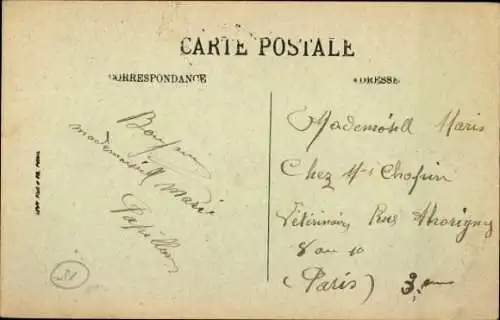 CARTE POSTALE
CORRESPONDANCE
ADRESSE
Bonjour
mademoisell Marie
Papillon
Mademoisell Maris
Chez Mr Chopin
Vétérinaire Rue Thorigny
8 au 10
(Paris) 3.em
51